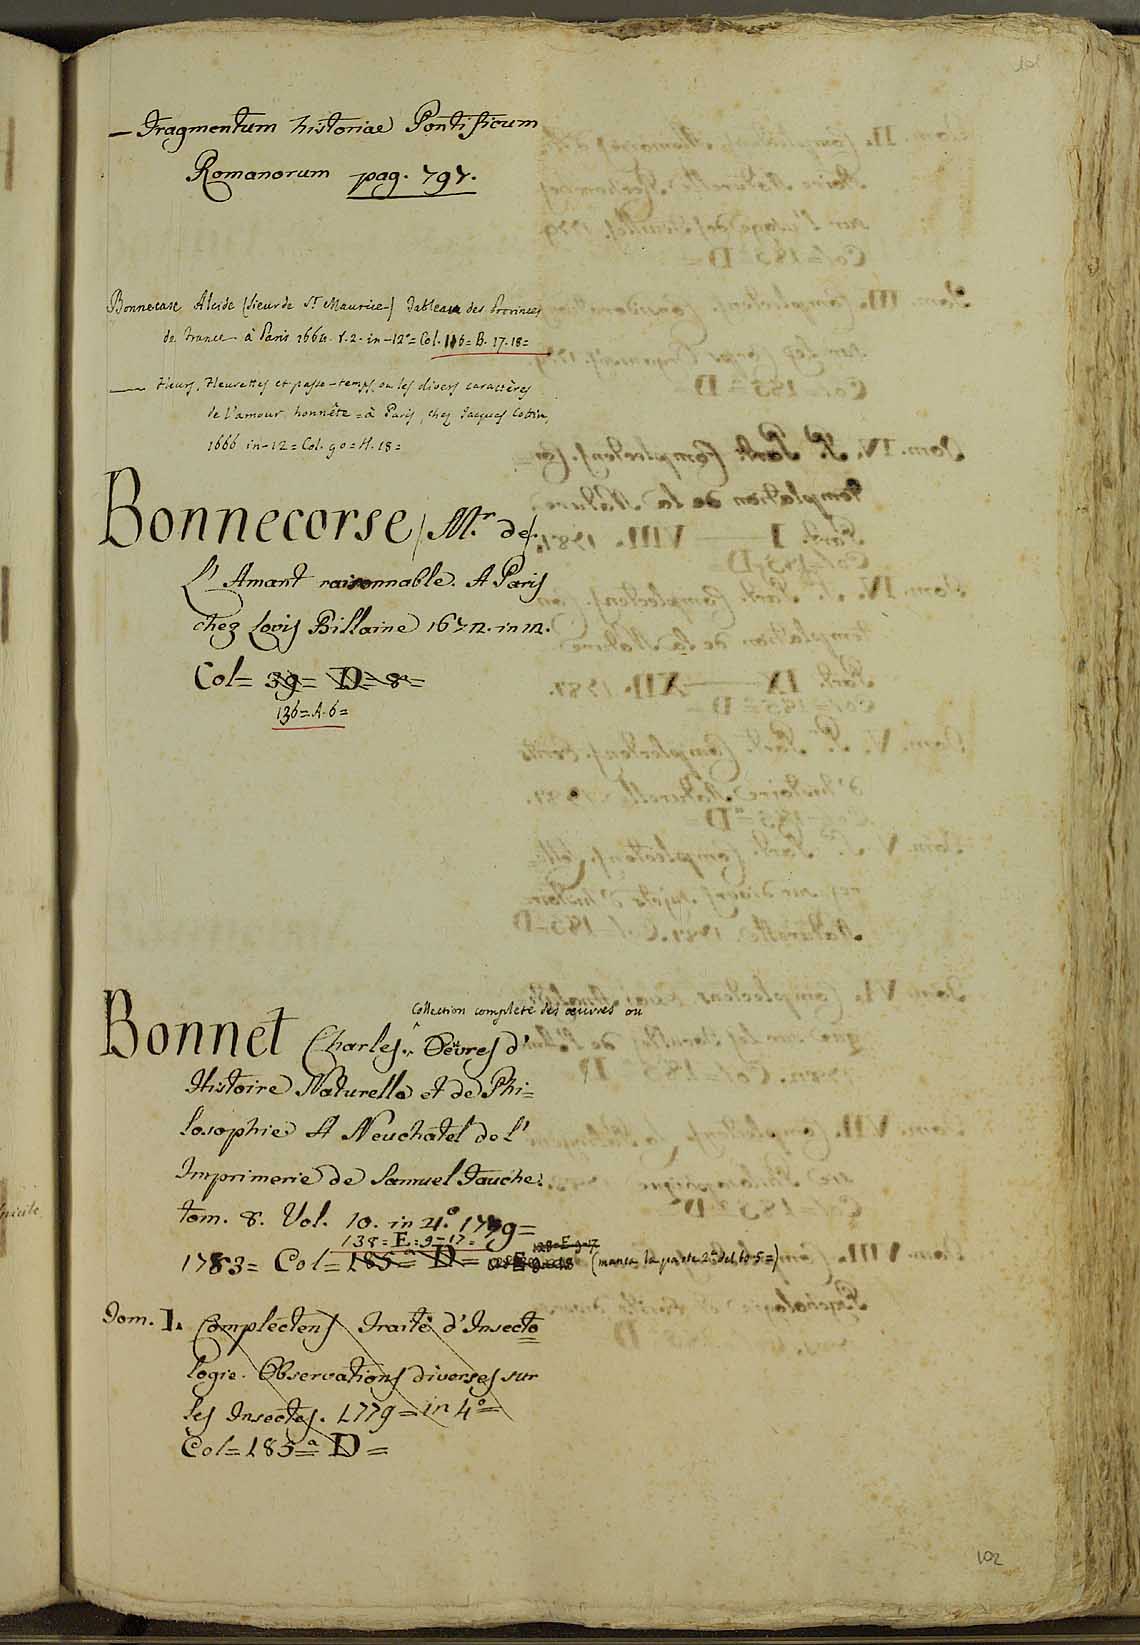 — Fragmentum historiae Pontificum
Romanorum pag. 797.
Bonnecase Alcide (Sieur de St. Maurice) Tableau des Provinces
de France à Paris 1664. v. 2. in-12°= Col. 116= B. 17. 18=
— Fleurs, Fleurettes et passe-temps, ou les divers caractères
de l'amour honnête = à Paris, chez Jacques Cottin,
1666 in-12= Col. 90= H. 18=
Bonnecorse (Mr. de).
L'Amant raisonnable. A Paris
chez Lovis Billaine 1672. in 12.
Col= 39= D= 8=
136= A. 6=
Collection complete des œuvres ou
Bonnet Charles. Oevres d'
Histoire Naturelle et de Phi=
losophie A Neuchâtel de l'
Imprimerie de Samuel Fauche.
tom. 8. Vol. 10. in 4.° 1779=
138= E= 9-17=
1783= Col= 185=a D= (manca la parte 2a del to 5=)
Tom. I. Complectens Traité d'Insecto
logie. Observations diverses sur
les Insectes. 1779= in 4°=
Col= 185=a D=
102